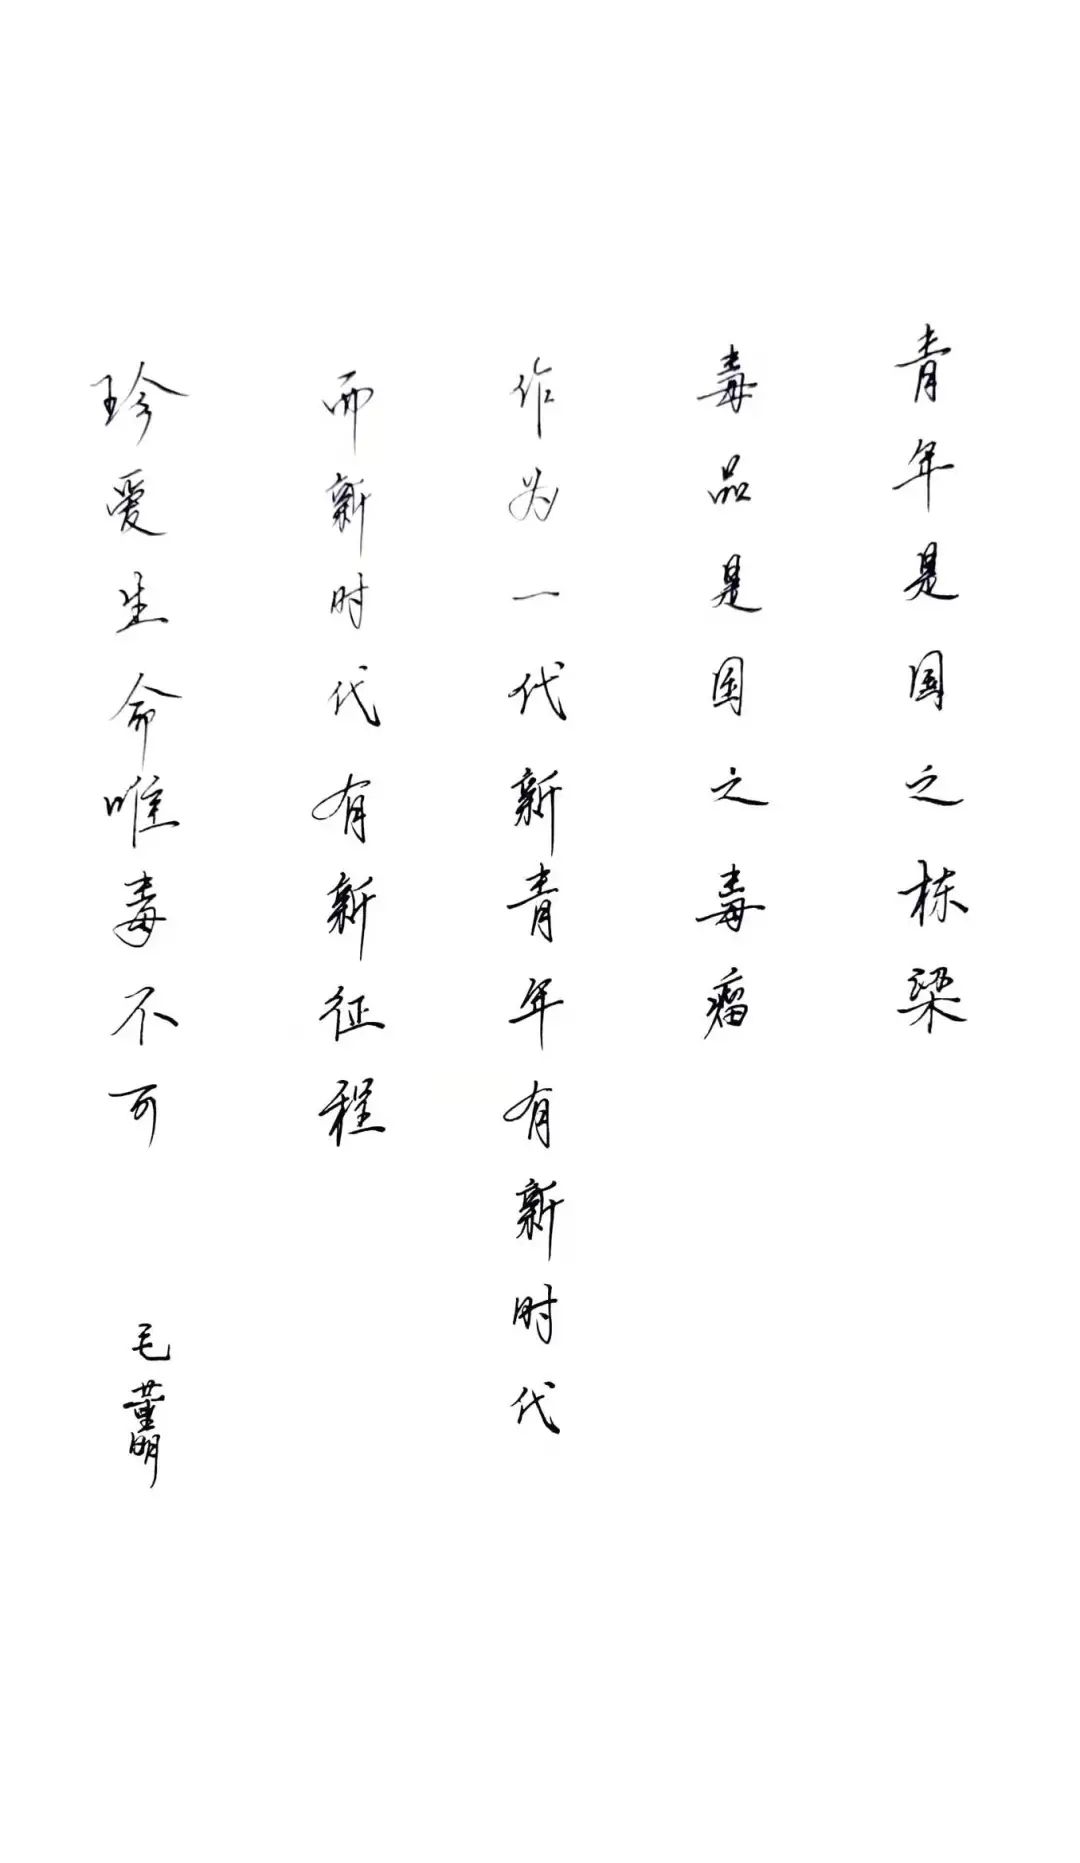 青年是国之栋梁
毒品是国之毒瘤
作为一代新青年有新时代
而新时代有新征程
珍爱生命唯毒不可
毛董明